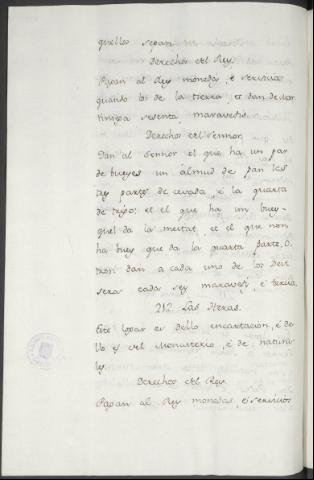 quellos sepan.
Derechos del Rey.
Pagan al Rey monedas, é servicios
quando los de la tierra, et dan de Mar
tiniega sesenta maravedis.
Derechos del Sennor.
Dan al Sennor el que ha un par
de bueyes un almud de pan las
tres partes de cevada, é la quarta
de trigo: et el que ha un buey
quel da la meitat, et el que non
ha buey que da la quarta parte. O
trosi dan a cada uno de los Devi
seros cada seys maraveds, é tercia.
212. Las Heras.
Este logar es dello encartacion, é de
llo es del Monasterio, é de natura
les.
Derechos del Rey.
Pagan al Rey monedas, é servicios